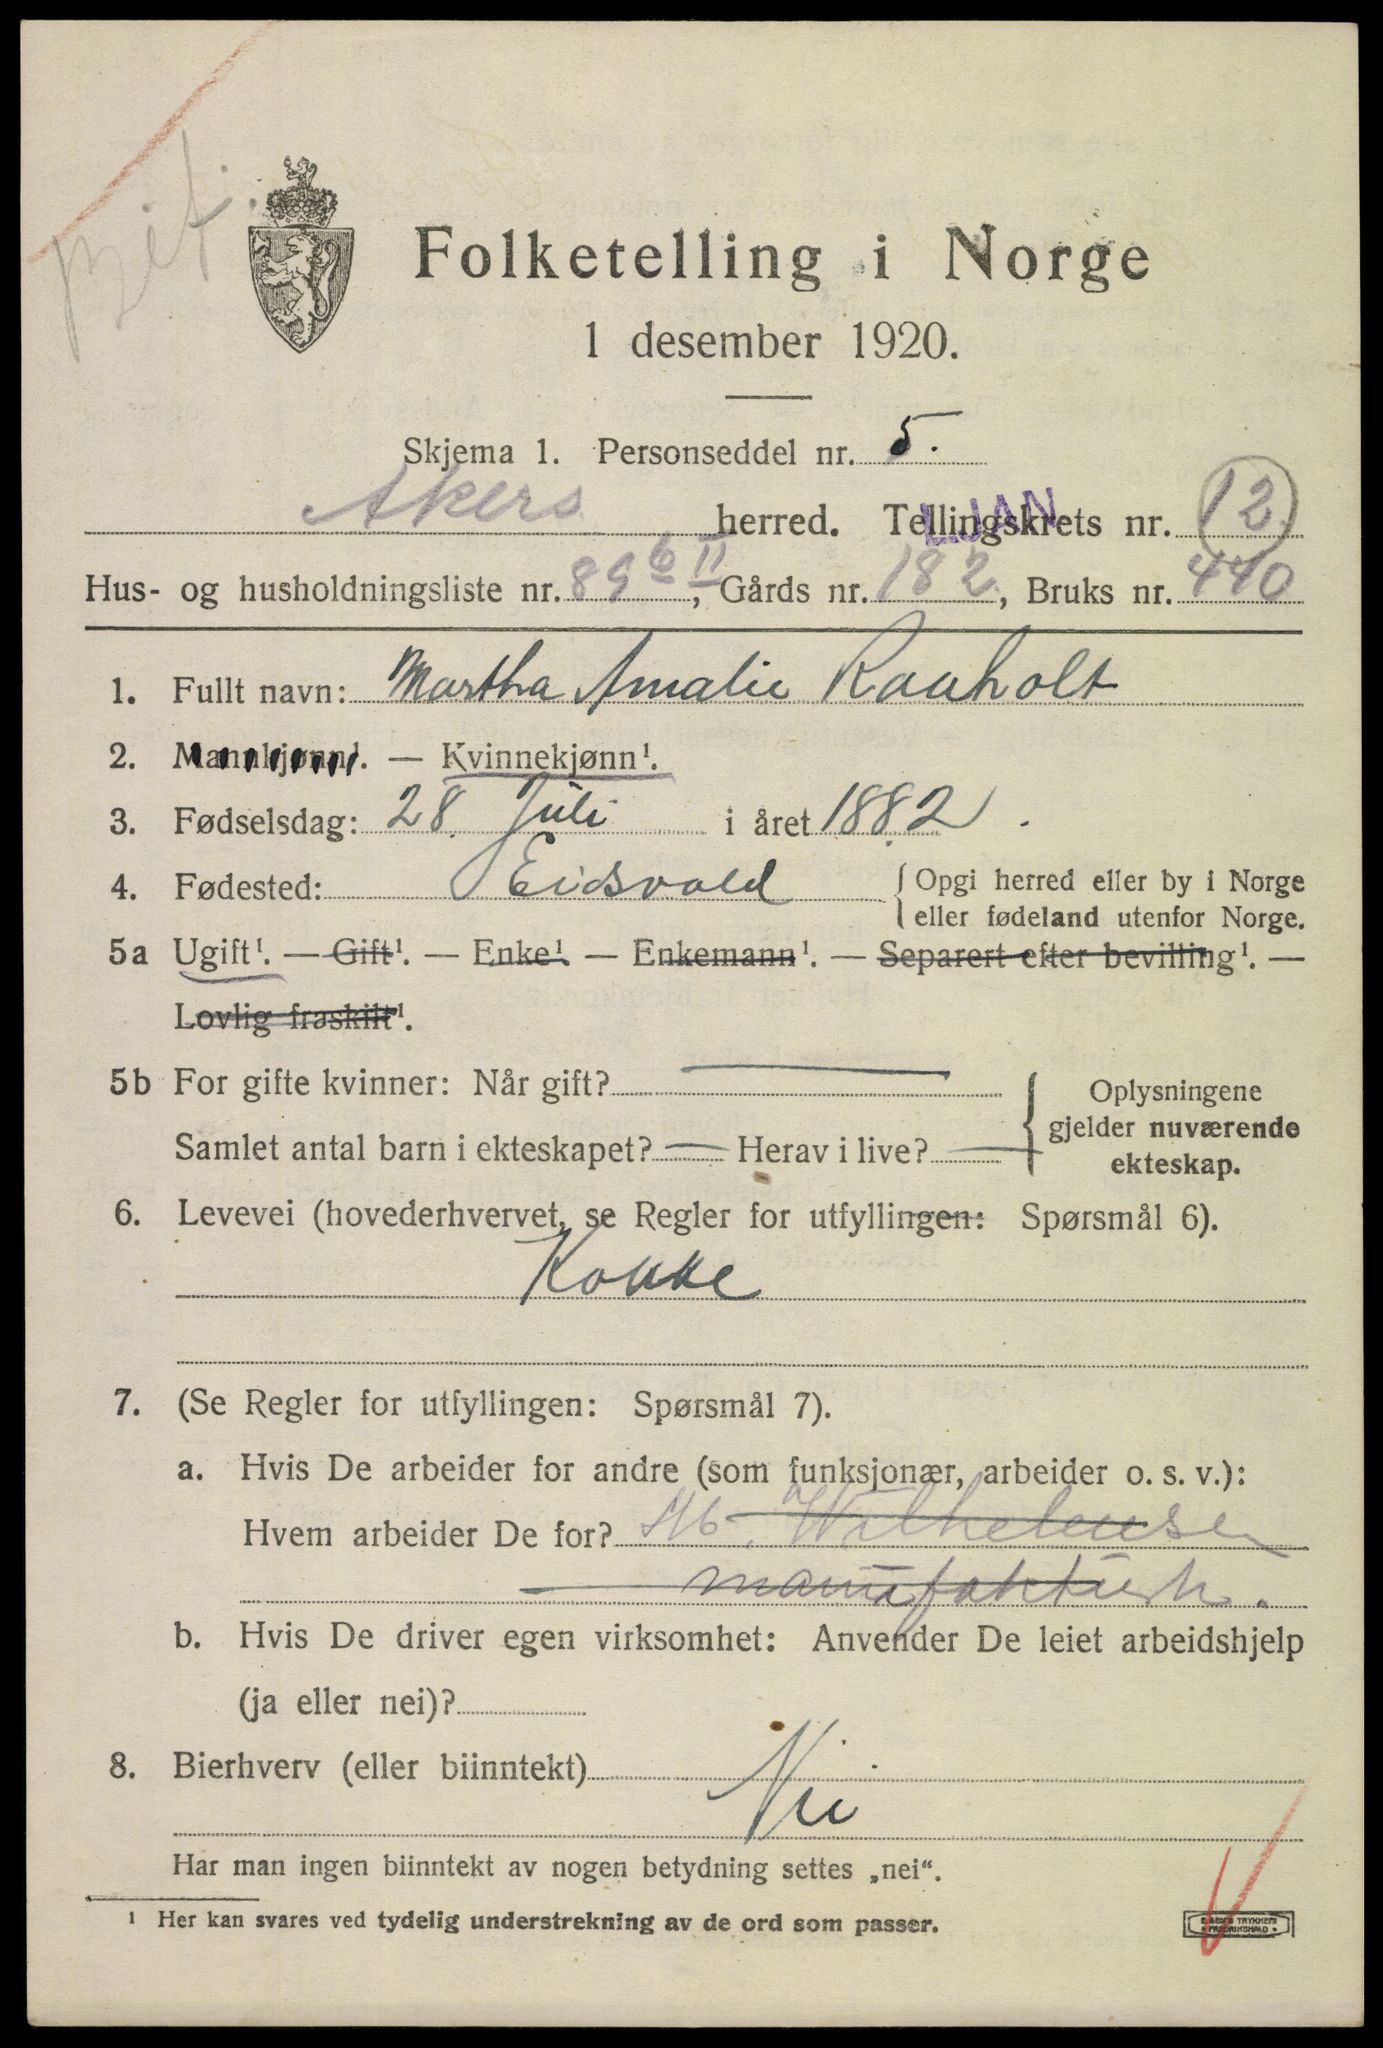 Folketelling i Norge
1 desember 1920.
Skjema 1. Personseddel nr. 5.
Akers herred. Tellingskrets nr. 12
LJAN
Hus- og husholdningsliste nr. 89 b II, Gårds nr. 182, Bruks nr. 440
1. Fullt navn: Martha Amalie Raaholt
2. Mannkjønn¹. — Kvinnekjønn¹.
3. Fødselsdag: 28 Juli i året 1882.
4. Fødested: Eidsvold { Opgi herred eller by i Norge
eller fødeland utenfor Norge.
5a Ugift¹. — Gift¹. — Enke¹ — Enkemann¹. — Separert efter bevilling¹. —
Lovlig fraskilt¹.
5b For gifte kvinner: Når gift? —
Samlet antal barn i ekteskapet? — Herav i live? —
Oplysningene
gjelder nuværende
ekteskap.
6. Levevei (hovederhvervet, se Regler for utfyllingen: Spørsmål 6).
Kokke
7. (Se Regler for utfyllingen: Spørsmål 7).
a. Hvis De arbeider for andre (som funksjonær, arbeider o. s. v.):
Hvem arbeider De for? Wilhelmsen
b. Hvis De driver egen virksomhet: Anvender De leiet arbeidshjelp
(ja eller nei)?
8. Bierhverv (eller biinntekt) Nei
Har man ingen biinntekt av nogen betydning settes „nei".
¹ Her kan svares ved tydelig understrekning av de ord som passer.